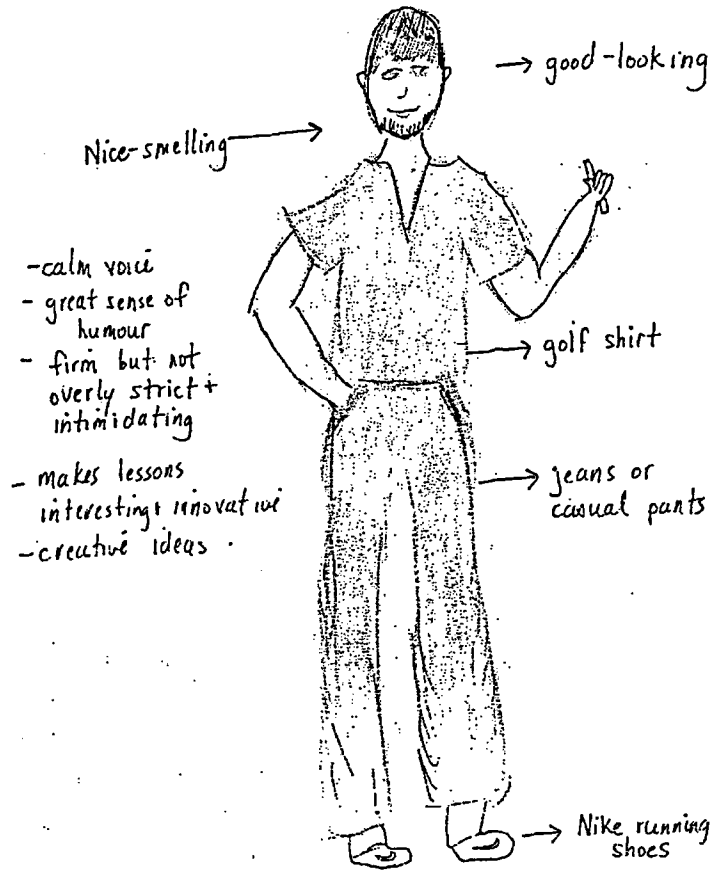 good-looking
Nice-smelling
-calm voice
- great sense of
humour
- firm but not
overly strict +
intimidating
- makes lessons
interesting + innovative
-creative ideas.
golf shirt
jeans or
casual pants
Nike running
shoes